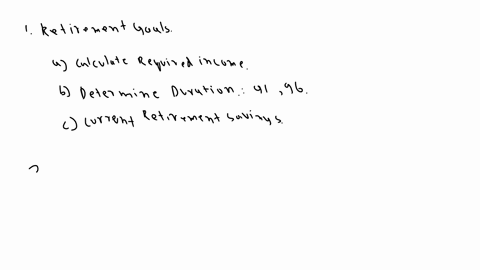 1. Retirement Goals.
a) Calculate Required income.
b) Determine Duration: 41, 96.
c) Current Retirement savings.
2